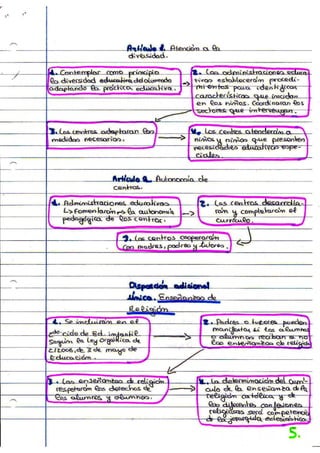 Artículo 8. Atención a la
diversidad.
1. Contemplar como principio
la diversidad educativa del alumnado
adaptando la práctica educativa.
2. Las administraciones educa
tivas establecerán procedi-
mientos para identificar
características que incidan
en los niños. Coordinarán los
sectores que intervengan.
3. Los centros adaptarán las
medidas necesarias.
4. Los centros atenderán a
niños y niñas que presenten
necesidades educativas espe-
ciales.
Artículo 9. Autonomía de
centros.
1. Administraciones educativas
Lo fomentarán la autonomía
pedagógica de los centros.
2. Los centros desarrolla-
rán y completarán el
currículo.
3. Los centros cooperarán
con madres, padres y tutores.
Disposición adicional
única. Enseñanzas de
Religión
1. Se incluirán en el
2º ciclo de Ed. infantil
Según, la ley Orgánica de
2/2006, de 3 de mayo de
Educación.
2. Padres o tutores puedan
manifestar si los alumnos
o alumnas reciban si no
las enseñanzas de religión
3. Las enseñanzas de religión
respetarán los derechos de
los alumnos y alumnas.
4. La determinación del currí-
culo de la enseñanza de la
religión católica y de
las diferentes confesiones
religiosas será competencia
de la jerarquía eclesiástica.
5.